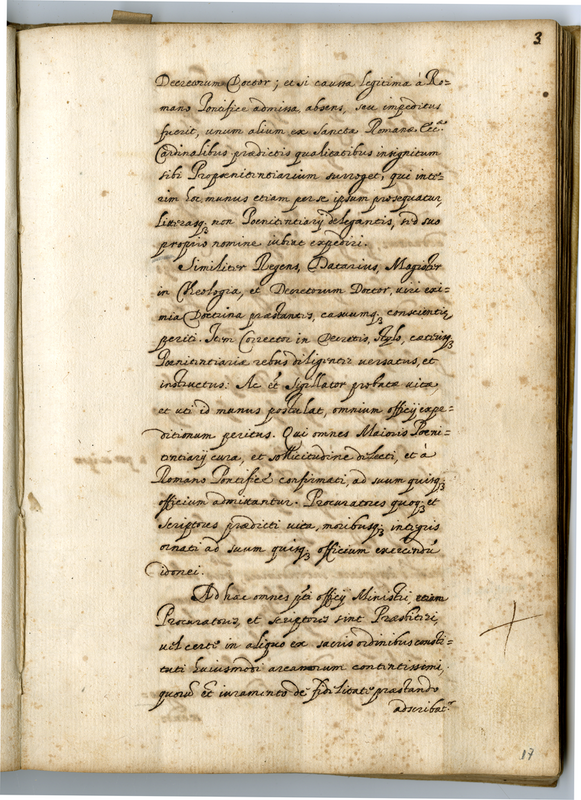 3
Decretorum Doctor; et si caussa legitima à Ro-
mano Pontifice admissa absens, seu impeditus
fuerit, unum alium ex Sanctæ Romanæ Ecc.æ
Cardinalibus prædictis qualitatibus insignitum
sibi Propœnitentiarium surroget; qui inte-
rim hoc munus etiam per se ipsum prosequatur
litterasq; non Pœnitentiarij delegantis, sed suo
proprio nomine iubeat expediri.
Similiter Regens, Datarius, Magister
in Theologia, et Decretorum Doctor, viri exi-
mia Doctrina præstantes, casuumq; conscientiæ
periti. Item Corrector in Decretis, Stylo, cæterisq;
Pœnitentiariæ rebus diligenter versatus, et
instructus: Ac et Sigillator probatæ vitæ,
et uti id munus postulat, omnium officij expe-
ditionum peritus. Qui omnes Maioris Pœni-
tentiarij cura, et sollicitudine delecti, et à
Romano Pontifice confirmati, ad suum quisq;
officium admittantur. Procuratores quoq; et
scriptores prædicti vita, moribusq; integris
ornati ad suum quisq; officium exercendū
idonei.
Ad hæc omnes p̄ti officij Ministri, etiam
Procuratores, et scriptores sint Præsbiteri,
vel certe in aliquo ex sacris ordinibus consti-
tuti huiusmodi arcanorum continentissimi,
quorū et iuramento de fidelitate præstando
adscribat.r
19